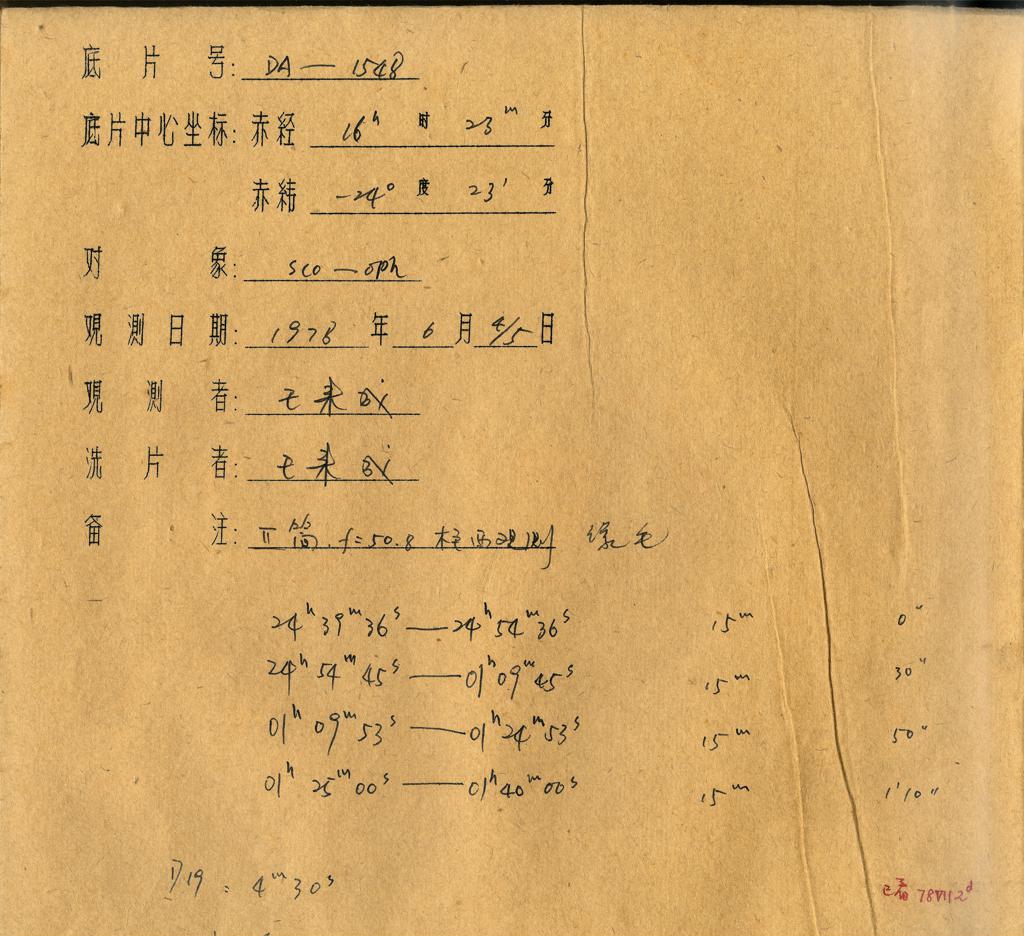 底片号: DA — 1548
底片中心坐标: 赤经 16h 时 23m 分
赤纬 -24° 度 23' 分
对象: sco — oph
观测日期: 1978 年 6 月 4/5 日
观测者: 王来成
洗片者: 王来成
备注: II筒. f=50.8 柱西观测
24h 39m 36s — 24h 54m 36s 15m 0"
24h 54m 45s — 01h 09m 45s 15m 30"
01h 09m 53s — 01h 24m 53s 15m 50"
01h 25m 00s — 01h 40m 00s 15m 1'10"
D19: 4m 30s
已看 78VII2d